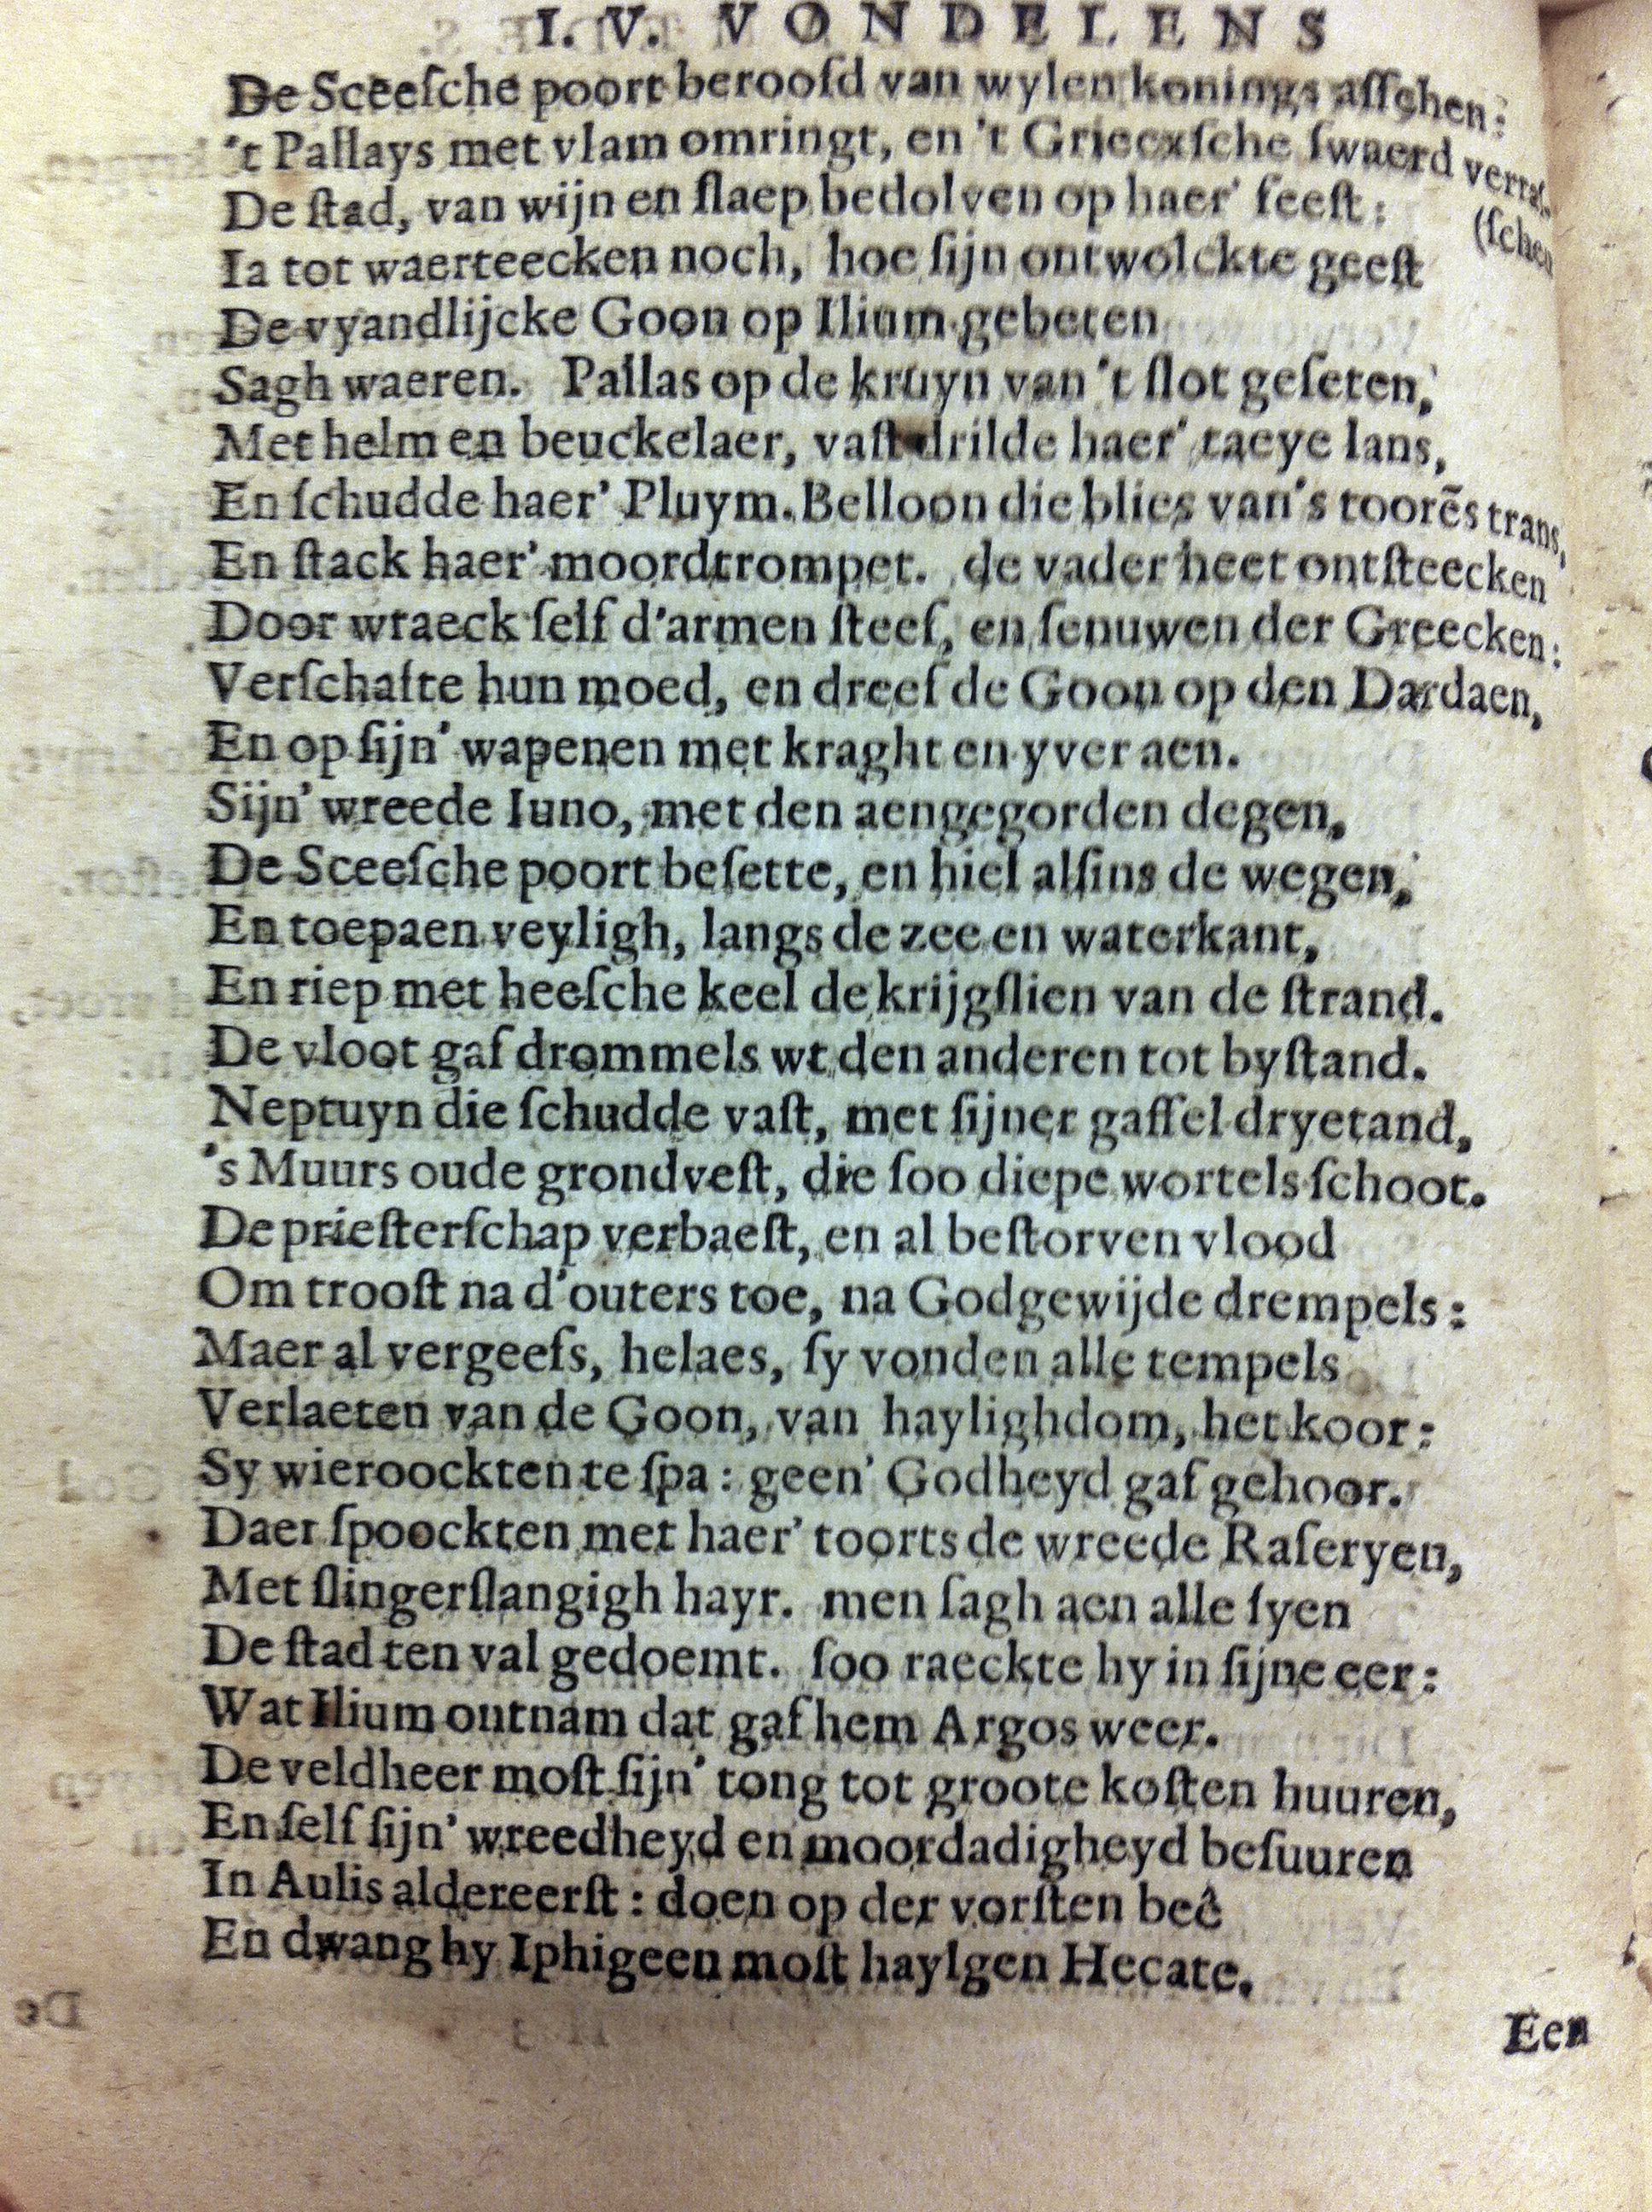 I. V. VONDELENS
De Sceeſche poort beroofd van wylen konings aſſchen:
't Pallays met vlam omringt, en 't Griecxſche ſwaerd verraſ-
(ſchen
De ſtad, van wijn en ſlaep bedolven op haer' feeſt:
Ia tot waerteecken noch, hoe ſijn ontwolckte geeſt
De vyandlijcke Goon op Ilium gebeten
Sagh waeren. Pallas op de kruyn van 't ſlot geſeten,
Met helm en beuckelaer, vaſt drilde haer' taeye lans,
En ſchudde haer' Pluym. Belloon die blies van 's toorẽs trans,
En ſtack haer' moordtrompet. de vader heet ontſteecken
Door wraeck ſelf d'armen ſteef, en ſenuwen der Greecken:
Verſchafte hun moed, en dreef de Goon op den Dardaen,
En op ſijn' wapenen met kraght en yver aen.
Sijn' wreede Iuno, met den aengegorden degen,
De Sceeſche poort beſette, en hiel alſins de wegen,
En toepaen veyligh, langs de zee en waterkant,
En riep met heeſche keel de krijgſlien van de ſtrand.
De vloot gaf drommels wt den anderen tot byſtand.
Neptuyn die ſchudde vaſt, met ſijner gaffel dryetand,
's Muurs oude grondveſt, die ſoo diepe wortels ſchoot.
De prieſterſchap verbaeſt, en al beſtorven vlood
Om trooſt na d'outers toe, na Godgewijde drempels:
Maer al vergeefs, helaes, ſy vonden alle tempels
Verlaeten van de Goon, van haylighdom, het koor:
Sy wieroockten te ſpa: geen' Godheyd gaf gehoor.
Daer ſpoockten met haer' toorts de wreede Raſeryen,
Met ſlingerſlangigh hayr. men ſagh aen alle ſyen
De ſtad ten val gedoemt. ſoo raeckte hy in ſijne eer:
Wat Ilium ontnam dat gaf hem Argos weer.
De veldheer moſt ſijn' tong tot groote koſten huuren,
En ſelf ſijn' wreedheyd en moordadigheyd beſuuren
In Aulis aldereerſt: doen op der vorſten beê
En dwang hy Iphigeen moſt haylgen Hecate.
Een